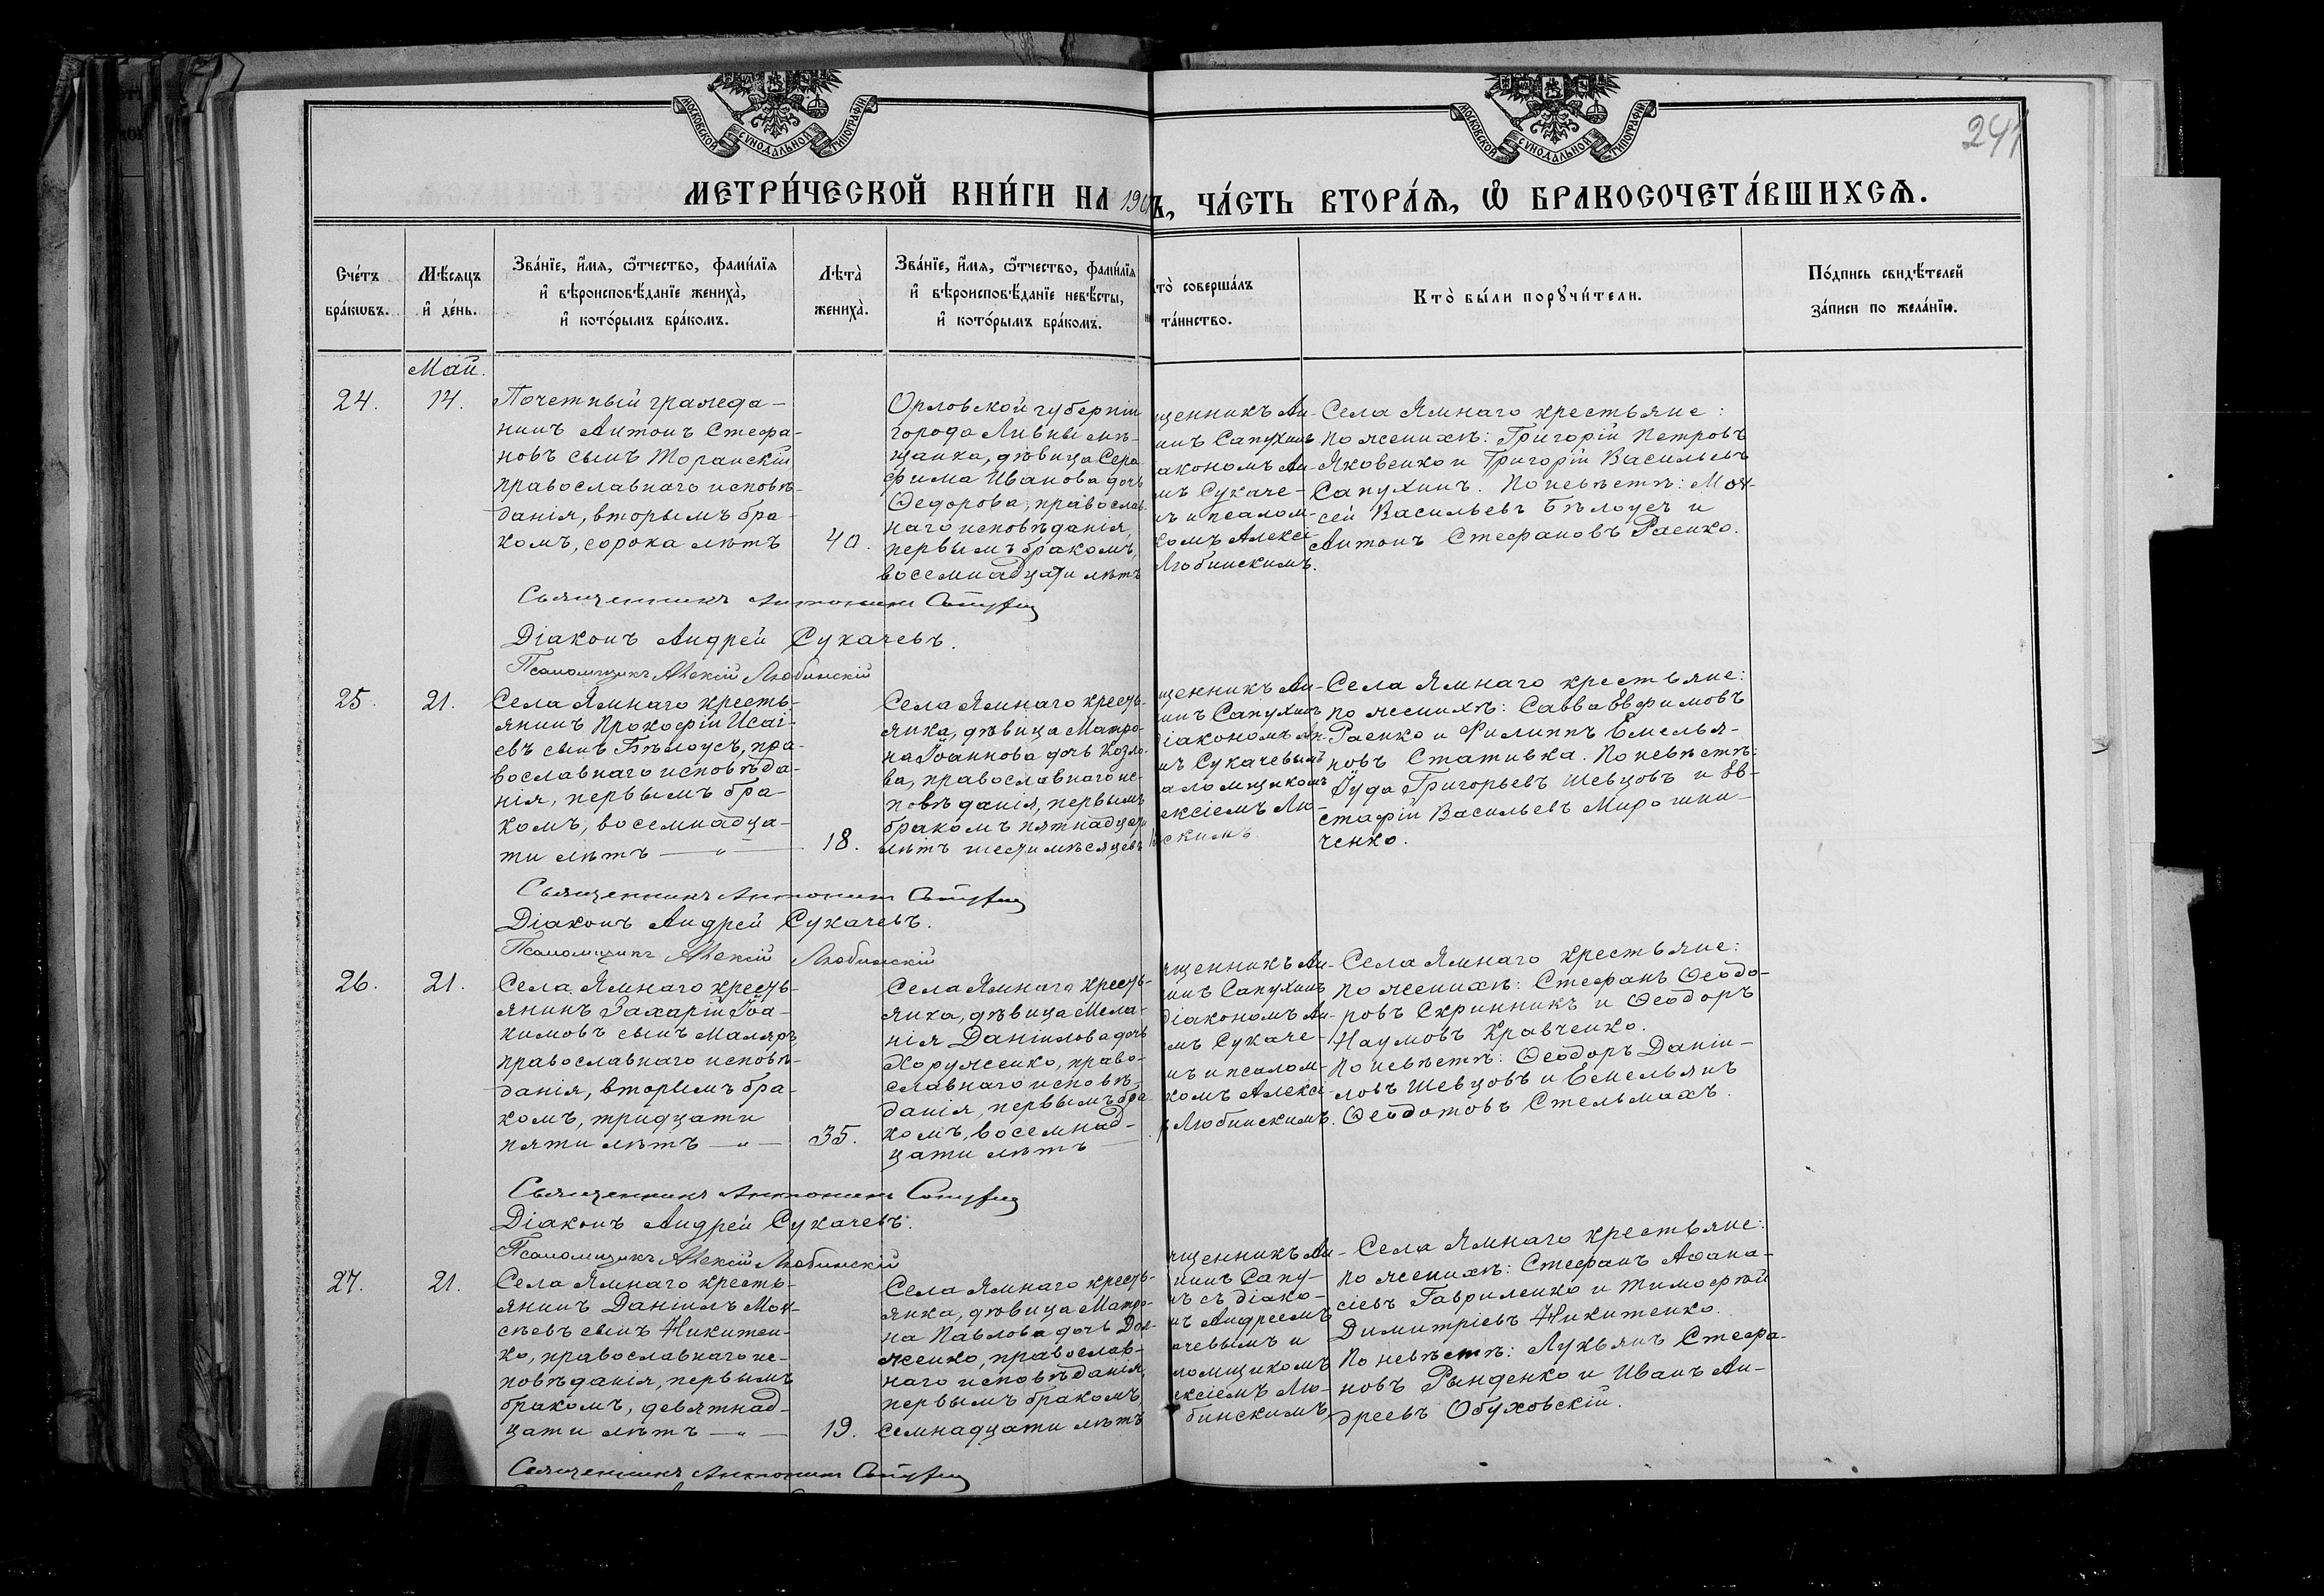 МОСКОВСКОЙ СѴНОДАЛЬНОЙ ТИПОГРАФІИ
МОСКОВСКОЙ СѴНОДАЛЬНОЙ ТИПОГРАФІИ
МЕТРИ́ЧЕСКОЙ КНИ́ГИ НА 190
Ъ, ЧА́СТЬ ВТОРА́Ѧ, Ѽ БРАКОСОЧЕТА́ВШИХСѦ.
Сче́тъ бра́кѡвъ.
Мѣ́сяцъ и҆ де́нь.
Зва́нїе, и҆́мѧ, ѻ҆́тчество, фами́лїѧ
и҆ вѣроисповѣ́данїе жениха̀,
и҆ кото́рымъ бра́комъ.
Лѣта̀ жениха̀.
Зва́нїе, и҆́мѧ, ѻ҆́тчество, фами́лїѧ
и҆ вѣроисповѣ́данїе невѣ́сты,
и҆ кото́рымъ бра́комъ.
то̀ соверша́лъ
та́инство.
Кто̀ бы́ли порꙋчи́тели.
По́дпись свидѣ́телей
за́писи по жела́нїю.
Май.
24.
14.
Почетный гражда-
нинъ Антонъ Стефа-
новъ сынъ Торанскій
православнаго исповѣ-
данія, вторымъ бра-
комъ, сорока лѣтъ
40.
Орловской губерніи
города Ливны мѣ-
щанка, дѣвица Сера-
фима Иванова дочь
Ѳедорова, православ-
наго исповѣданія,
первымъ бракомъ,
восемнадцати лѣтъ
щенникъ Ан-
инъ Сапухинъ
акономъ Ан-
мъ Сукаче-
ъ и псалом-
комъ Алексі-
Любинскимъ.
Села Ямнаго крестьяне:
По женихѣ: Григорій Петровъ
Яковенко и Григорій Васильевъ
Сапухинъ. По невѣстѣ: Мои-
сей Васильевъ Бѣлоусъ и
Антонъ Стефановъ Раенко.
Священникъ Антонинъ Сапухин
Діаконъ Андрей Сукачевъ.
Псаломщикъ Алексій Любинскій
25.
21.
Села Ямнаго кресть-
янинъ Прокофій Исаі-
евъ сынъ Бѣлоусъ, пра-
вославнаго исповѣда-
нія, первымъ бра-
комъ, восемнадца-
ти лѣтъ — „ —
18.
Села Ямнаго кресть-
янка, дѣвица Матро-
на Іоаннова дочь Козло-
ва, православнаго ис-
повѣданія, первымъ
бракомъ пятнадцати
лѣтъ шести мѣсяцевъ
щенникъ Ан-
инъ Сапухинъ
діакономъ Ан-
мъ Сукачевымъ
аломщикомъ
ексіемъ Лю-
скимъ
Села Ямнаго крестьяне:
по женихѣ: Савва Евфимовъ
Раенко и Филиппъ Емелья-
новъ Стативка. По невѣстѣ:
Іуда Григорьевъ Шевцовъ и Ев-
стафій Васильевъ Мирошни-
ченко.
Священникъ Антонинъ Сапухин
Діаконъ Андрей Сукачевъ.
Псаломщикъ Алексій Любинскій
26.
21.
Села Ямнаго кресть-
янинъ Захарій Іоа-
кимовъ сынъ Маляръ,
православнаго исповѣ-
данія, вторымъ бра-
комъ, тридцати
пяти лѣтъ — „ —
35.
Села Ямнаго кресть-
янка, дѣвица Мела-
нія Даніилова дочь
Хоруженко, право-
славнаго исповѣ-
данія, первымъ бра-
комъ, восемнад-
цати лѣтъ —
щенникъ Ан-
инъ Сапухинъ
діакономъ Ан-
мъ Сукаче-
ъ и псалом-
комъ Алексі-
Любинскимъ.
Села Ямнаго крестьяне:
по женихѣ: Стефанъ Ѳеодо-
ровъ Скринникъ и Ѳеодоръ
Наумовъ Кравченко.
По невѣстѣ: Ѳеодоръ Даніи-
ловъ Шевцовъ и Емельянъ
Ѳеодотовъ Стельмахъ.
Священникъ Антонинъ Сапухин
Діаконъ Андрей Сукачевъ.
Псаломщикъ Алексій Любинскій
27.
21.
Села Ямнаго кресть-
янинъ Даніилъ Мои-
сеевъ сынъ Никитен-
ко, православнаго ис-
повѣданія, первымъ
бракомъ, девятнад-
цати лѣтъ — „ —
19.
Села Ямнаго кресть-
янка, дѣвица Матро-
на Павлова дочь Дол-
женко, православ-
наго исповѣданія,
первымъ бракомъ,
семнадцати лѣтъ
щенникъ Ан-
нинъ Сапу-
ъ съ діако-
ъ Андреемъ
ачевымъ и
ломщикомъ
ексіемъ Лю-
бинскимъ
Села Ямнаго крестьяне:
по женихѣ: Стефанъ Аѳана-
сіевъ Гавриленко и Тимофѣй
Димитріевъ Никитенко.
По невѣстѣ: Лукьянъ Стефа-
новъ Рынденко и Иванъ Ан-
дреевъ Обуховскій.
Священникъ Антонинъ Сапухин